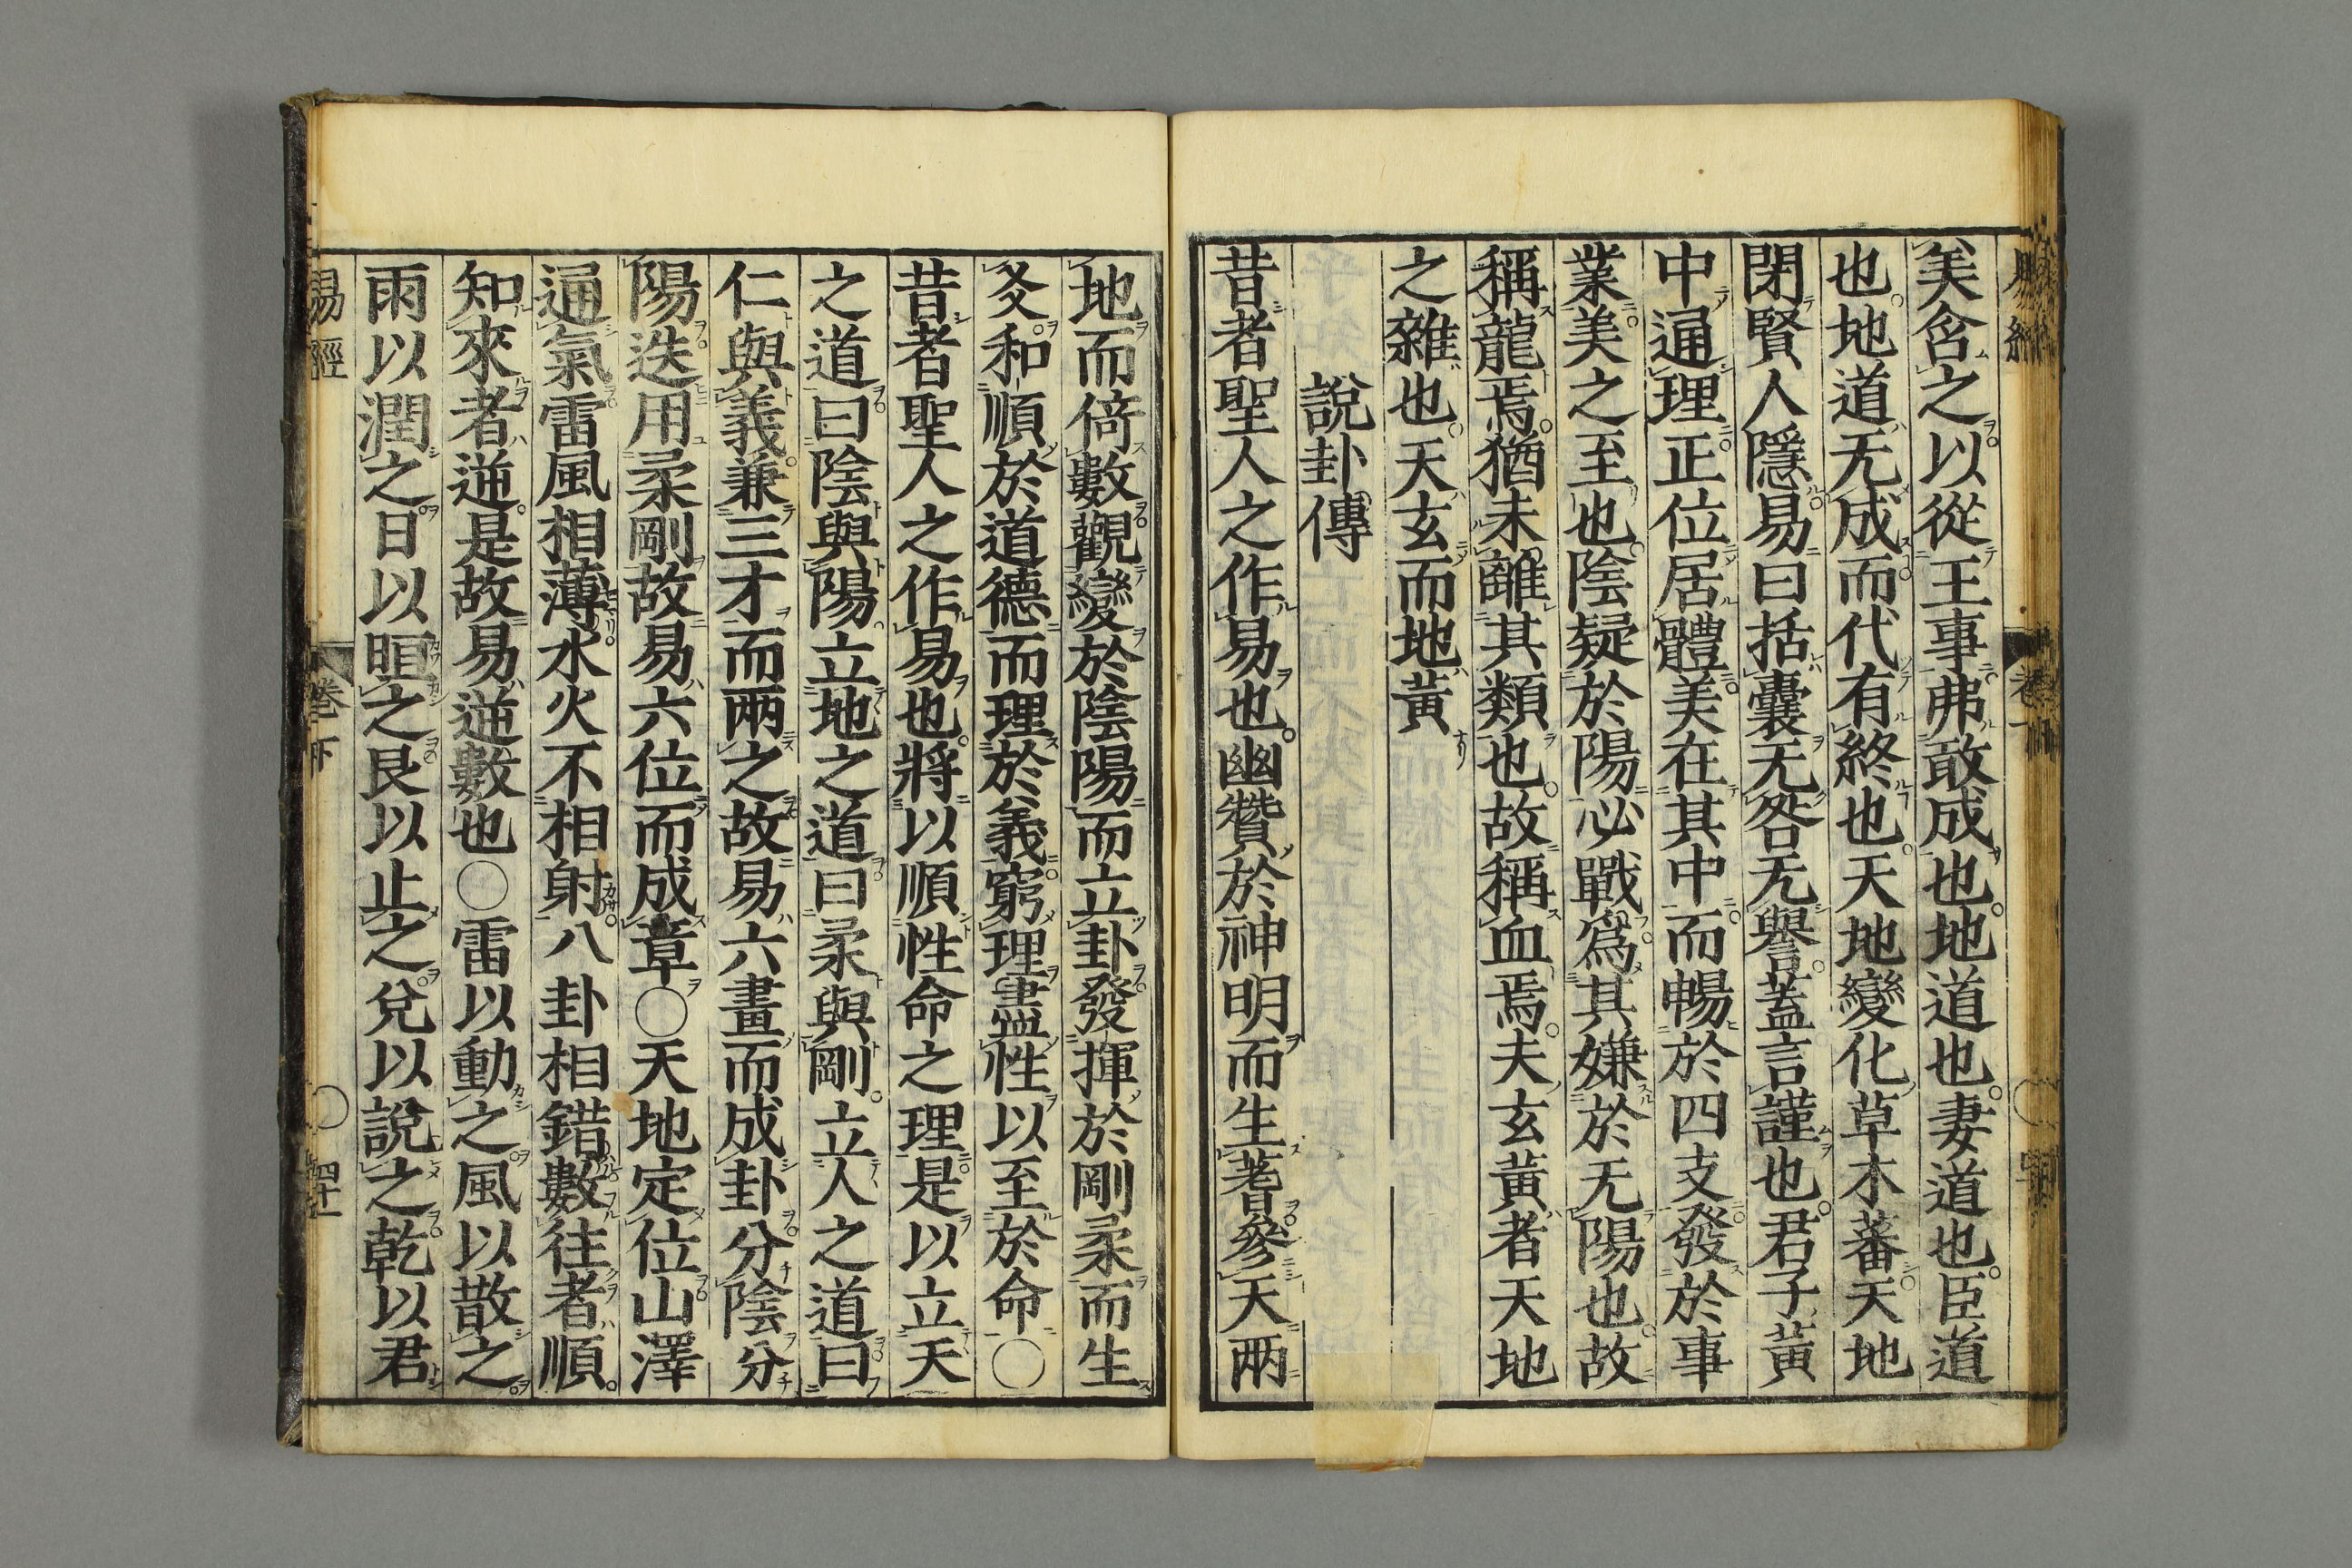 美含之以從王事弗敢成也地道也妻道也臣道
也地道无成而代有終也天地變化草木蕃天地
閉賢人隱易曰括囊无咎无譽蓋言謹也君子黃
中通理正位居體美在其中而暢於四支發於事
業美之至也陰疑於陽必戰爲其嫌於无陽也故
稱龍焉猶未離其類也故稱血焉夫玄黃者天地
之雜也天玄而地黃
說卦傳
昔者聖人之作易也幽贊於神明而生蓍參天兩
地而倚數觀變於陰陽而立卦發揮於剛柔而生
爻和順於道德而理於義窮理盡性以至於命○
昔者聖人之作易也將以順性命之理是以立天
之道曰陰與陽立地之道曰柔與剛立人之道曰
仁與義兼三才而兩之故易六畫而成卦分陰分
陽迭用柔剛故易六位而成章○天地定位山澤
通氣雷風相薄水火不相射八卦相錯數往者順
知來者逆是故易逆數也○雷以動之風以散之
雨以潤之日以晅之艮以止之兌以說之乾以君
易經 卷下 ○